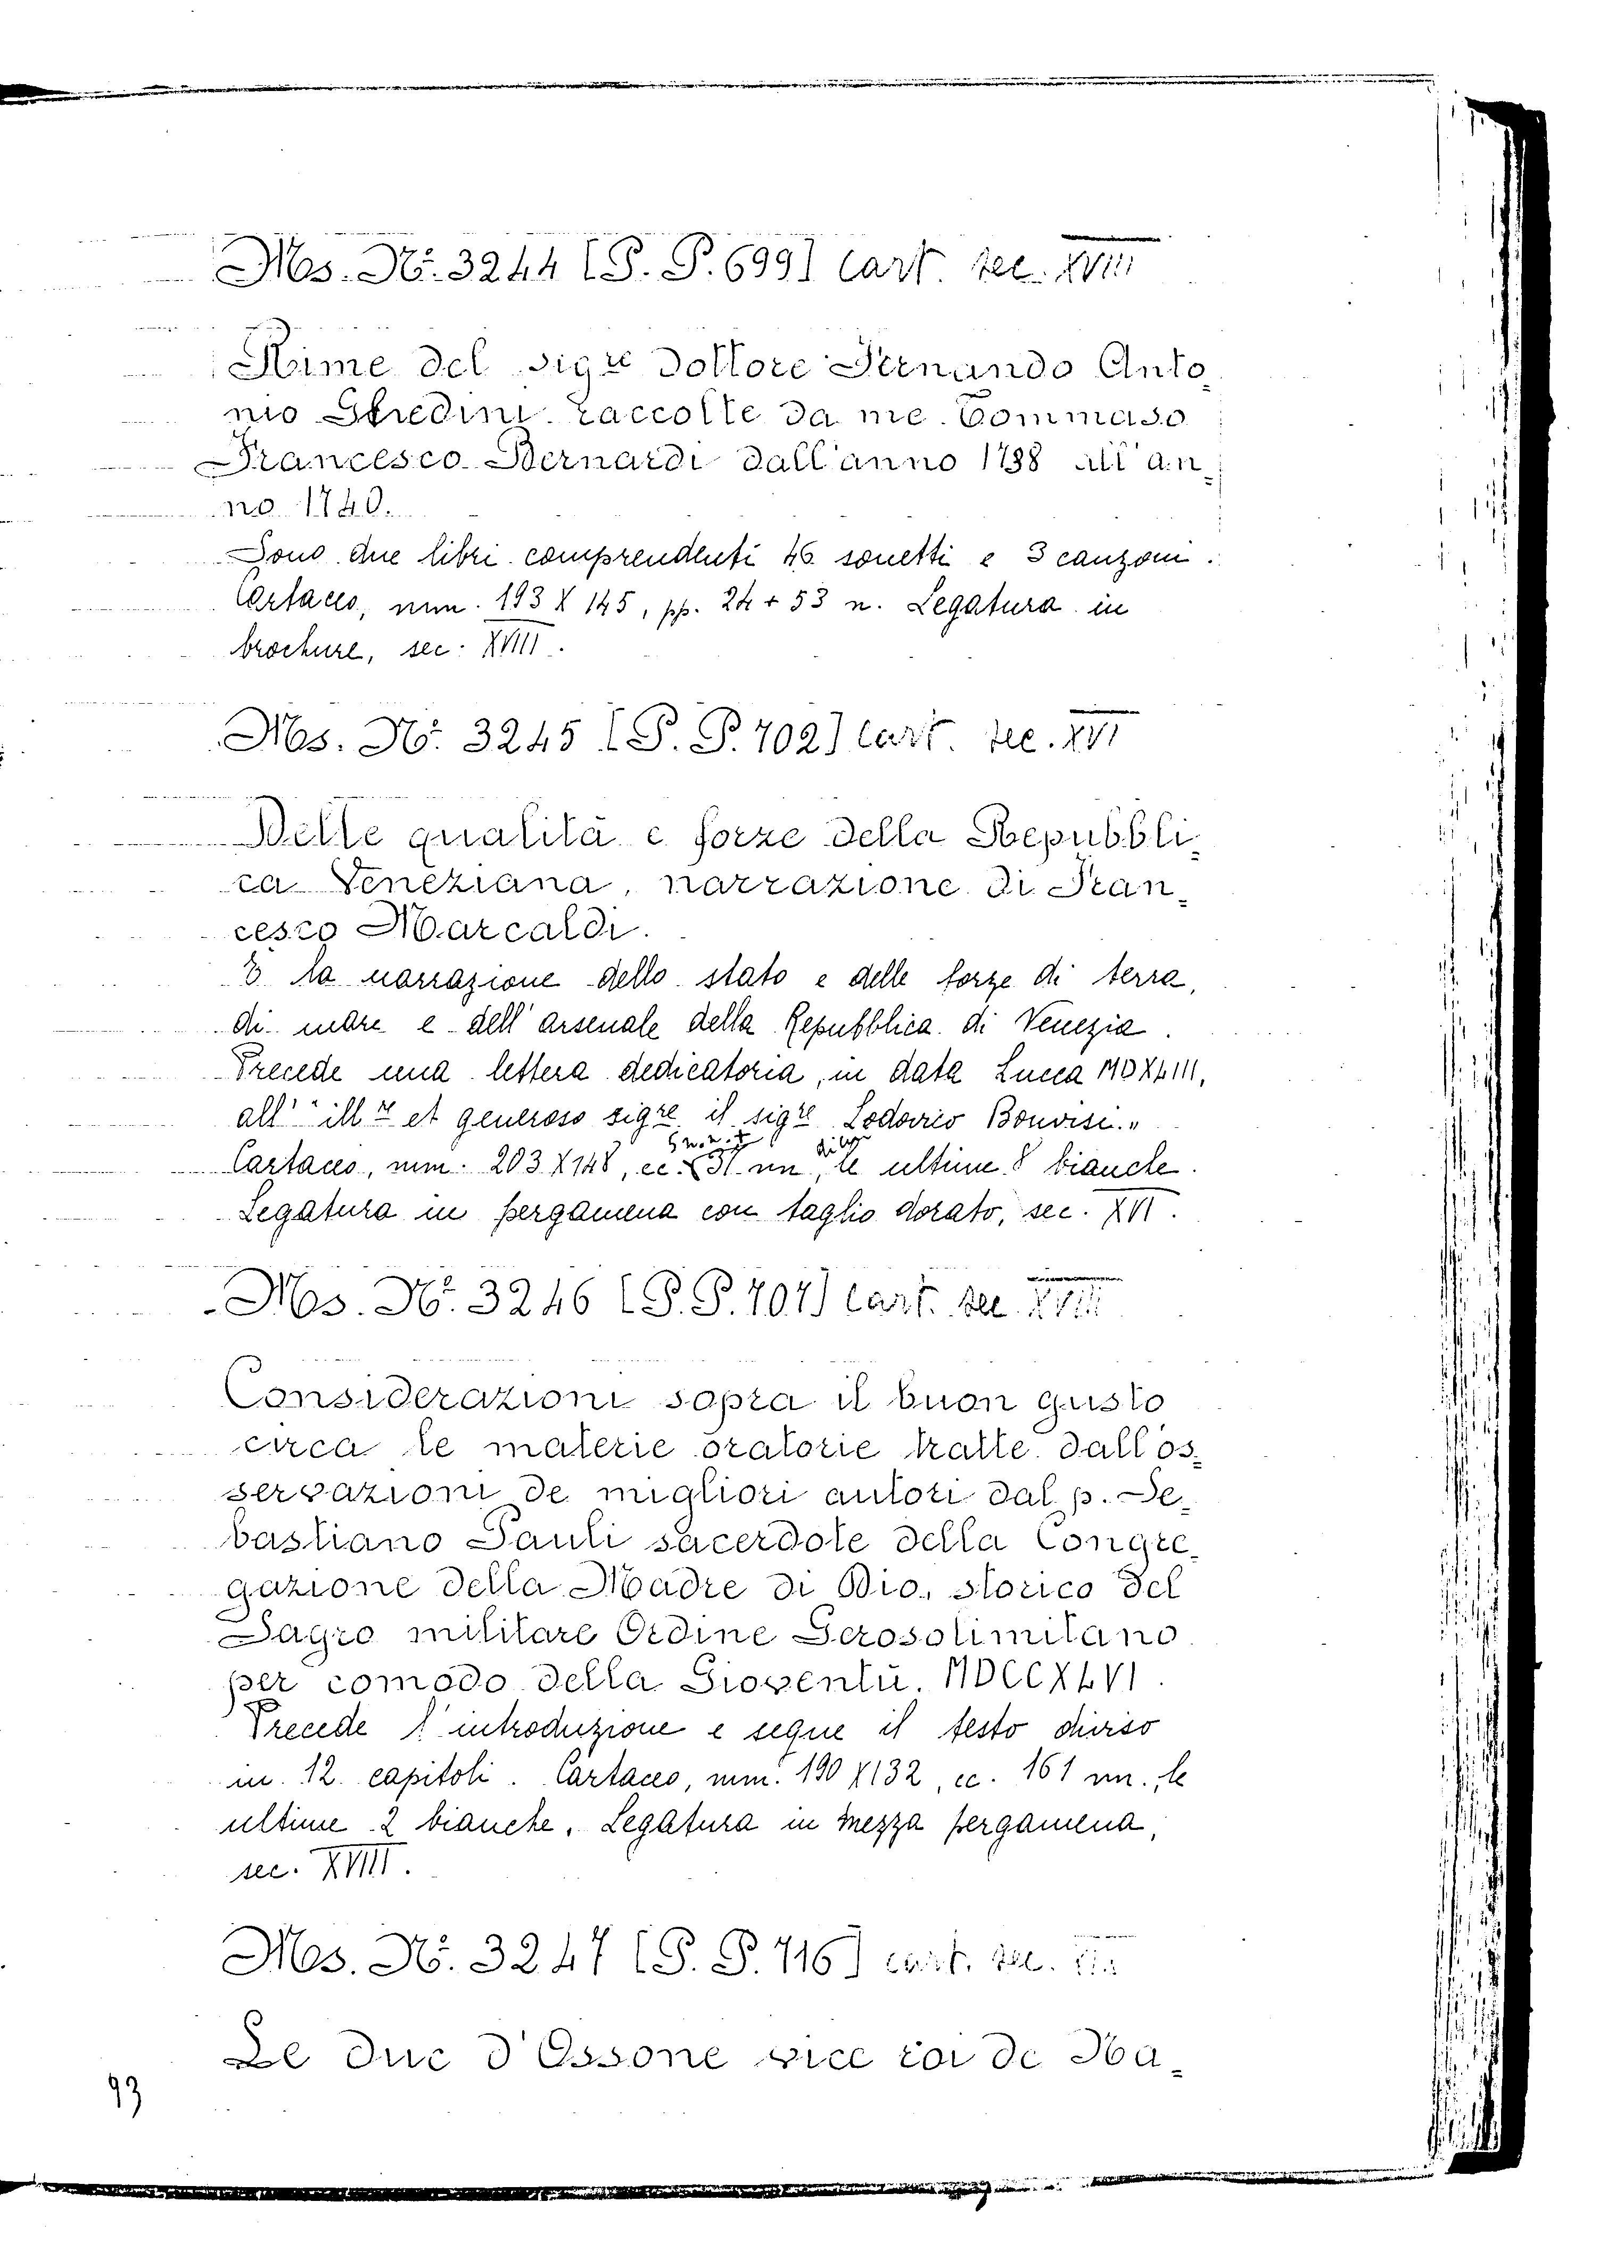 Ms. N.º 3244 [P. P. 699] cart. sec. XVIII
Rime del sig.re dottore Fernando Anto=
nio Ghedini raccolte da me Tommaso
Francesco Bernardi dall'anno 1738 all'an=
no 1740.
Sono due libri comprendenti 46 sonetti e 3 canzoni.
Cartaceo, mm. 193 X 145, pp. 24 + 53 n. Legatura in
brochure, sec. XVIII.
Ms. N.º 3245 [P. P. 702] cart. sec. XVI
Delle qualità e forze della Repubbli=
ca Veneziana, narrazione di Fran=
cesco Marcaldi.
È la narrazione dello stato e delle forze di terra,
di mare e dell'arsenale della Repubblica di Venezia.
Precede una lettera dedicatoria, in data Lucca MDXLIII,
all' "ill.re et generoso sig.re il sig.re Lodovico Bonvisi."
Cartaceo, mm. 203 X 148, cc. 31 nn, le ultime 8 bianche.
Legatura in pergamena con taglio dorato, sec. XVI.
Ms. N.º 3246 [P. P. 707] cart. sec. XVIII
Considerazioni sopra il buon gusto
circa le materie oratorie tratte dall'os=
servazioni de migliori autori dal p. Se=
bastiano Pauli sacerdote della Congre=
gazione della Madre di Dio, storico del
Sagro militare Ordine Gerosolimitano
per comodo della Gioventù. MDCCXLVI.
Precede l'introduzione e segue il testo diviso
in 12 capitoli. Cartaceo, mm. 190 X 132, cc. 161 nn., le
ultime 2 bianche. Legatura in mezza pergamena,
sec. XVIII.
Ms. N.º 3247 [P. P. 716] cart. sec.
Le duc d'Ossone vice roi de Na=
93